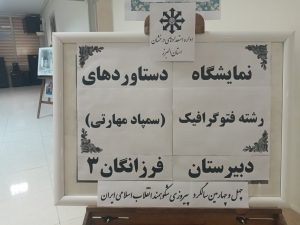 اداره استعدادهای درخشان
استان البرز
نمایشگاه دستاوردهای
رشته فتوگرافیک (سمپاد مهارتی)
دبیرستان فرزانگان ۳
چهل و چهارمین سالگرد پیروزی شکوهمند انقلاب اسلامی ایران